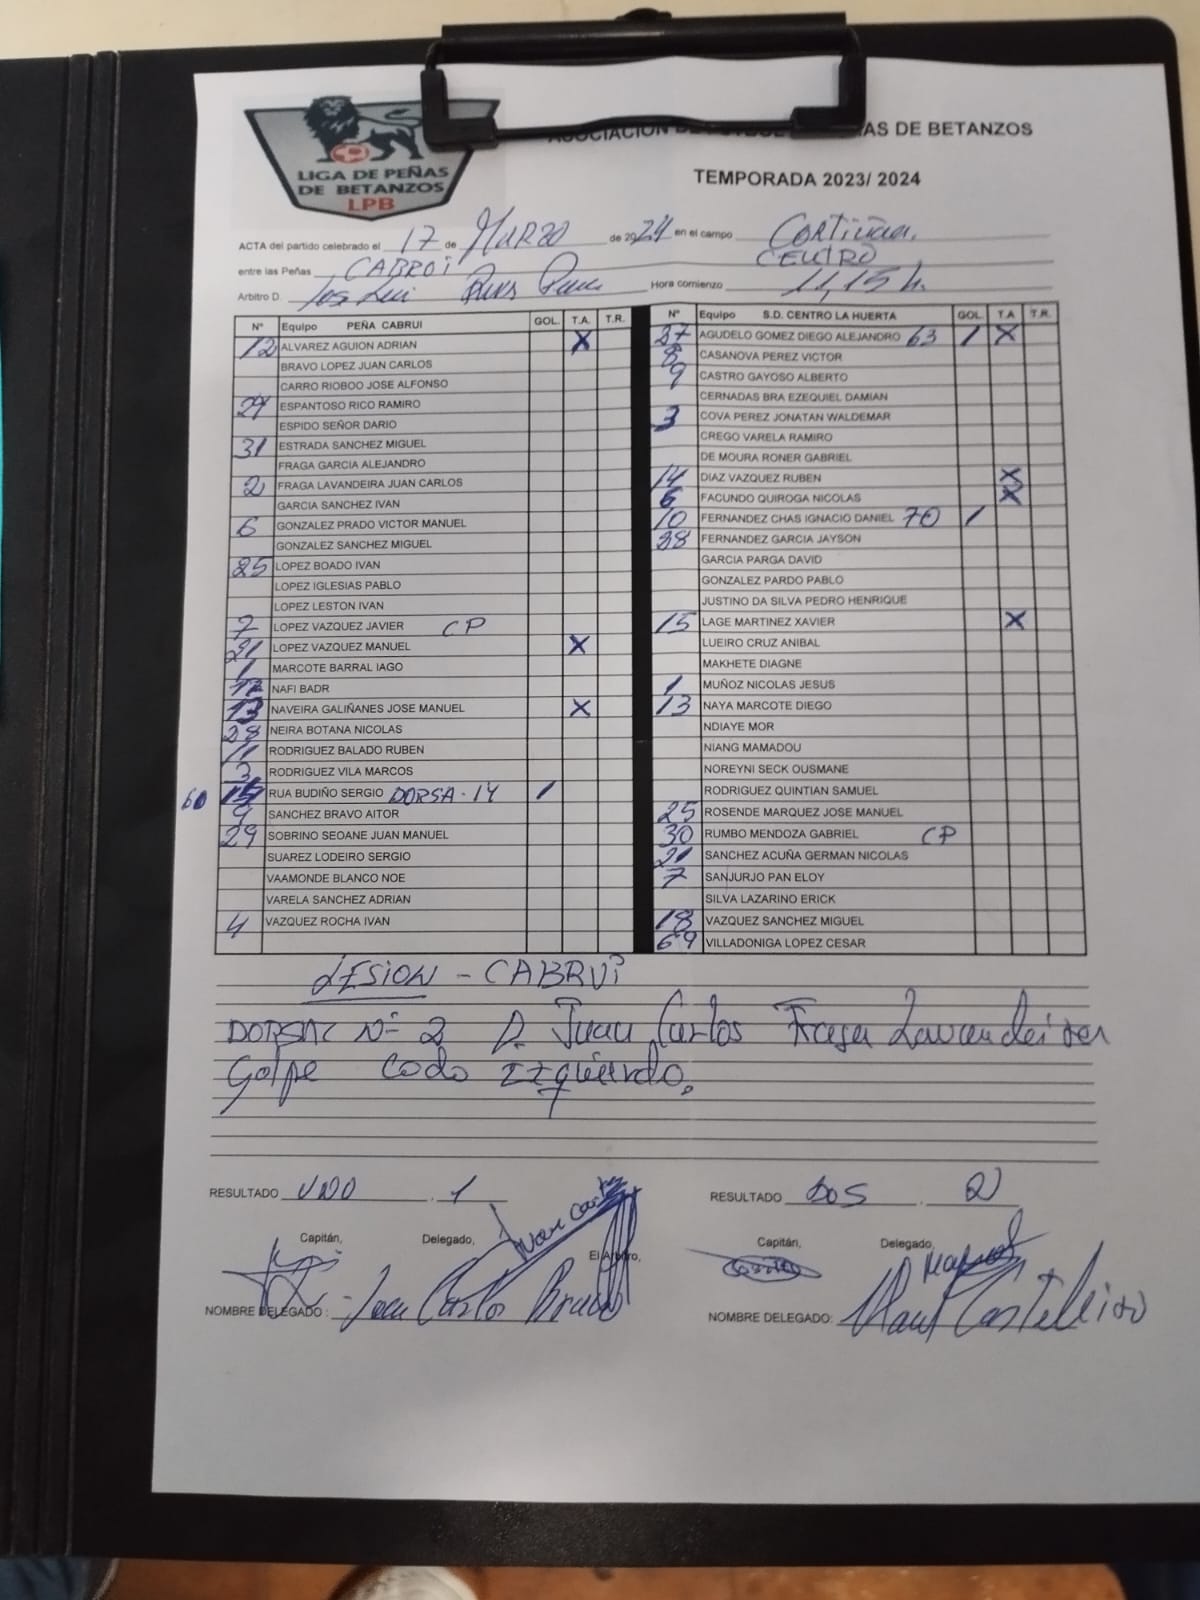 LIGA DE PEÑAS
DE BETANZOS
LPB
ASOCIACION DE AS DE BETANZOS
TEMPORADA 2023/ 2024
ACTA del partido celebrado el 17 de MARZO de 2024 en el campo Cortiñan.
entre las Peñas CABROI CENTRO
Arbitro D. Jos Luis Hora comienzo 11,15 h.
Nº Equipo PEÑA CABRUI GOL. T.A. T.R.
12 ALVAREZ AGUION ADRIAN X
BRAVO LOPEZ JUAN CARLOS
CARRO RIOBOO JOSE ALFONSO
ESPANTOSO RICO RAMIRO
ESPIDO SEÑOR DARIO
31 ESTRADA SANCHEZ MIGUEL
FRAGA GARCIA ALEJANDRO
2 FRAGA LAVANDEIRA JUAN CARLOS
GARCIA SANCHEZ IVAN
6 GONZALEZ PRADO VICTOR MANUEL
GONZALEZ SANCHEZ MIGUEL
25 LOPEZ BOADO IVAN
LOPEZ IGLESIAS PABLO
LOPEZ LESTON IVAN
7 LOPEZ VAZQUEZ JAVIER CP
21 LOPEZ VAZQUEZ MANUEL X
1 MARCOTE BARRAL IAGO
NAFI BADR
13 NAVEIRA GALIÑANES JOSE MANUEL X
28 NEIRA BOTANA NICOLAS
11 RODRIGUEZ BALADO RUBEN
3 RODRIGUEZ VILA MARCOS
60 RUA BUDIÑO SERGIO DORSA - 14 1
9 SANCHEZ BRAVO AITOR
29 SOBRINO SEOANE JUAN MANUEL
SUAREZ LODEIRO SERGIO
VAAMONDE BLANCO NOE
VARELA SANCHEZ ADRIAN
4 VAZQUEZ ROCHA IVAN
Nº Equipo S.D. CENTRO LA HUERTA GOL. T.A. T.R.
AGUDELO GOMEZ DIEGO ALEJANDRO 63 1 X
8 CASANOVA PEREZ VICTOR
9 CASTRO GAYOSO ALBERTO
CERNADAS BRA EZEQUIEL DAMIAN
3 COVA PEREZ JONATAN WALDEMAR
CREGO VARELA RAMIRO
DE MOURA RONER GABRIEL
14 DIAZ VAZQUEZ RUBEN X
6 FACUNDO QUIROGA NICOLAS X
10 FERNANDEZ CHAS IGNACIO DANIEL 70 1
38 FERNANDEZ GARCIA JAYSON
GARCIA PARGA DAVID
GONZALEZ PARDO PABLO
JUSTINO DA SILVA PEDRO HENRIQUE
15 LAGE MARTINEZ XAVIER X
LUEIRO CRUZ ANIBAL
MAKHETE DIAGNE
1 MUÑOZ NICOLAS JESUS
13 NAYA MARCOTE DIEGO
NDIAYE MOR
NIANG MAMADOU
NOREYNI SECK OUSMANE
RODRIGUEZ QUINTIAN SAMUEL
25 ROSENDE MARQUEZ JOSE MANUEL
30 RUMBO MENDOZA GABRIEL CP
21 SANCHEZ ACUÑA GERMAN NICOLAS
7 SANJURJO PAN ELOY
SILVA LAZARINO ERICK
18 VAZQUEZ SANCHEZ MIGUEL
69 VILLADONIGA LOPEZ CESAR
LESION - CABRUI
DORSAL Nº 2 D. Juan Carlos Fraga Lavandeira
Golpe Codo Izquierdo.
RESULTADO UNO 1 RESULTADO DOS 2
Capitán, Delegado, El Arbitro, Capitán, Delegado,
NOMBRE DELEGADO: Juan Carlos Bravo NOMBRE DELEGADO: Castelleiro